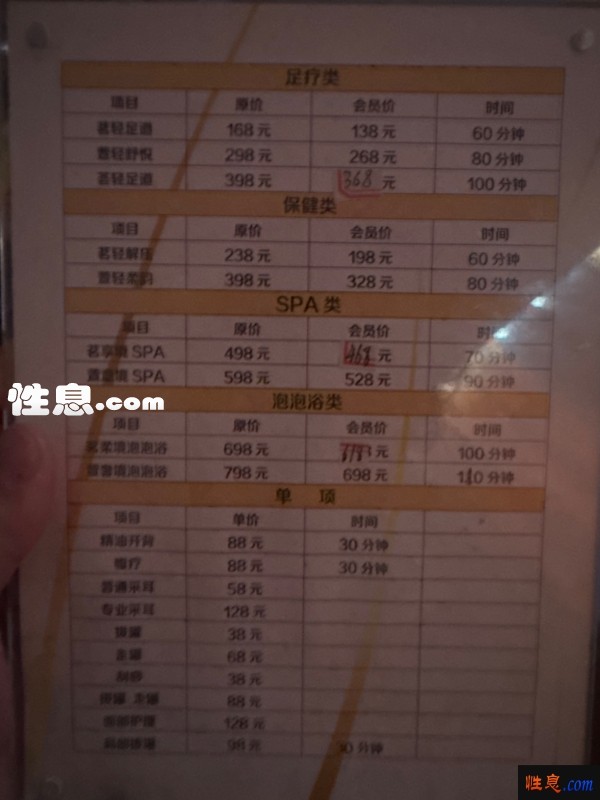 足疗类
项目 原价 会员价 时间
茗轻足道 168元 138元 60分钟
轻舒悦 298元 268元 80分钟
轻足道 398元 368元 100分钟
保健类
项目 原价 会员价 时间
茗轻解压 238元 198元 60分钟
轻柔 398元 328元 80分钟
SPA类
项目 原价 会员价 时间
茗享境SPA 498元 468元 70分钟
境SPA 598元 528元 90分钟
性息.com
泡泡浴类
项目 原价 会员价 时间
茗柔境泡泡浴 698元 元 100分钟
境泡泡浴 798元 698元 110分钟
单 项
项目 单价 时间
精油开背 88元 30分钟
疗 88元 30分钟
普通采耳 58元
专业采耳 128元
拔罐 38元
走罐 68元
刮痧 38元
拔罐 走罐 88元
面部护理 128元
98元 分钟
性息.com